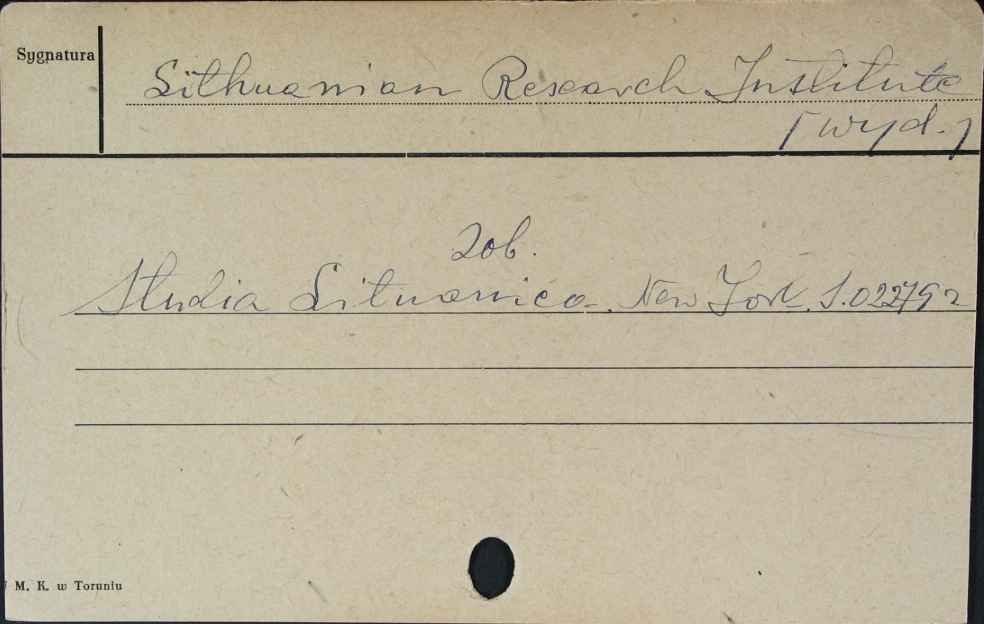 Sygnatura
Lithuanian Research Institute
[wyd.]
zob.
Studia Lituanica. New York. S.02279 2
M. K. w Toruniu